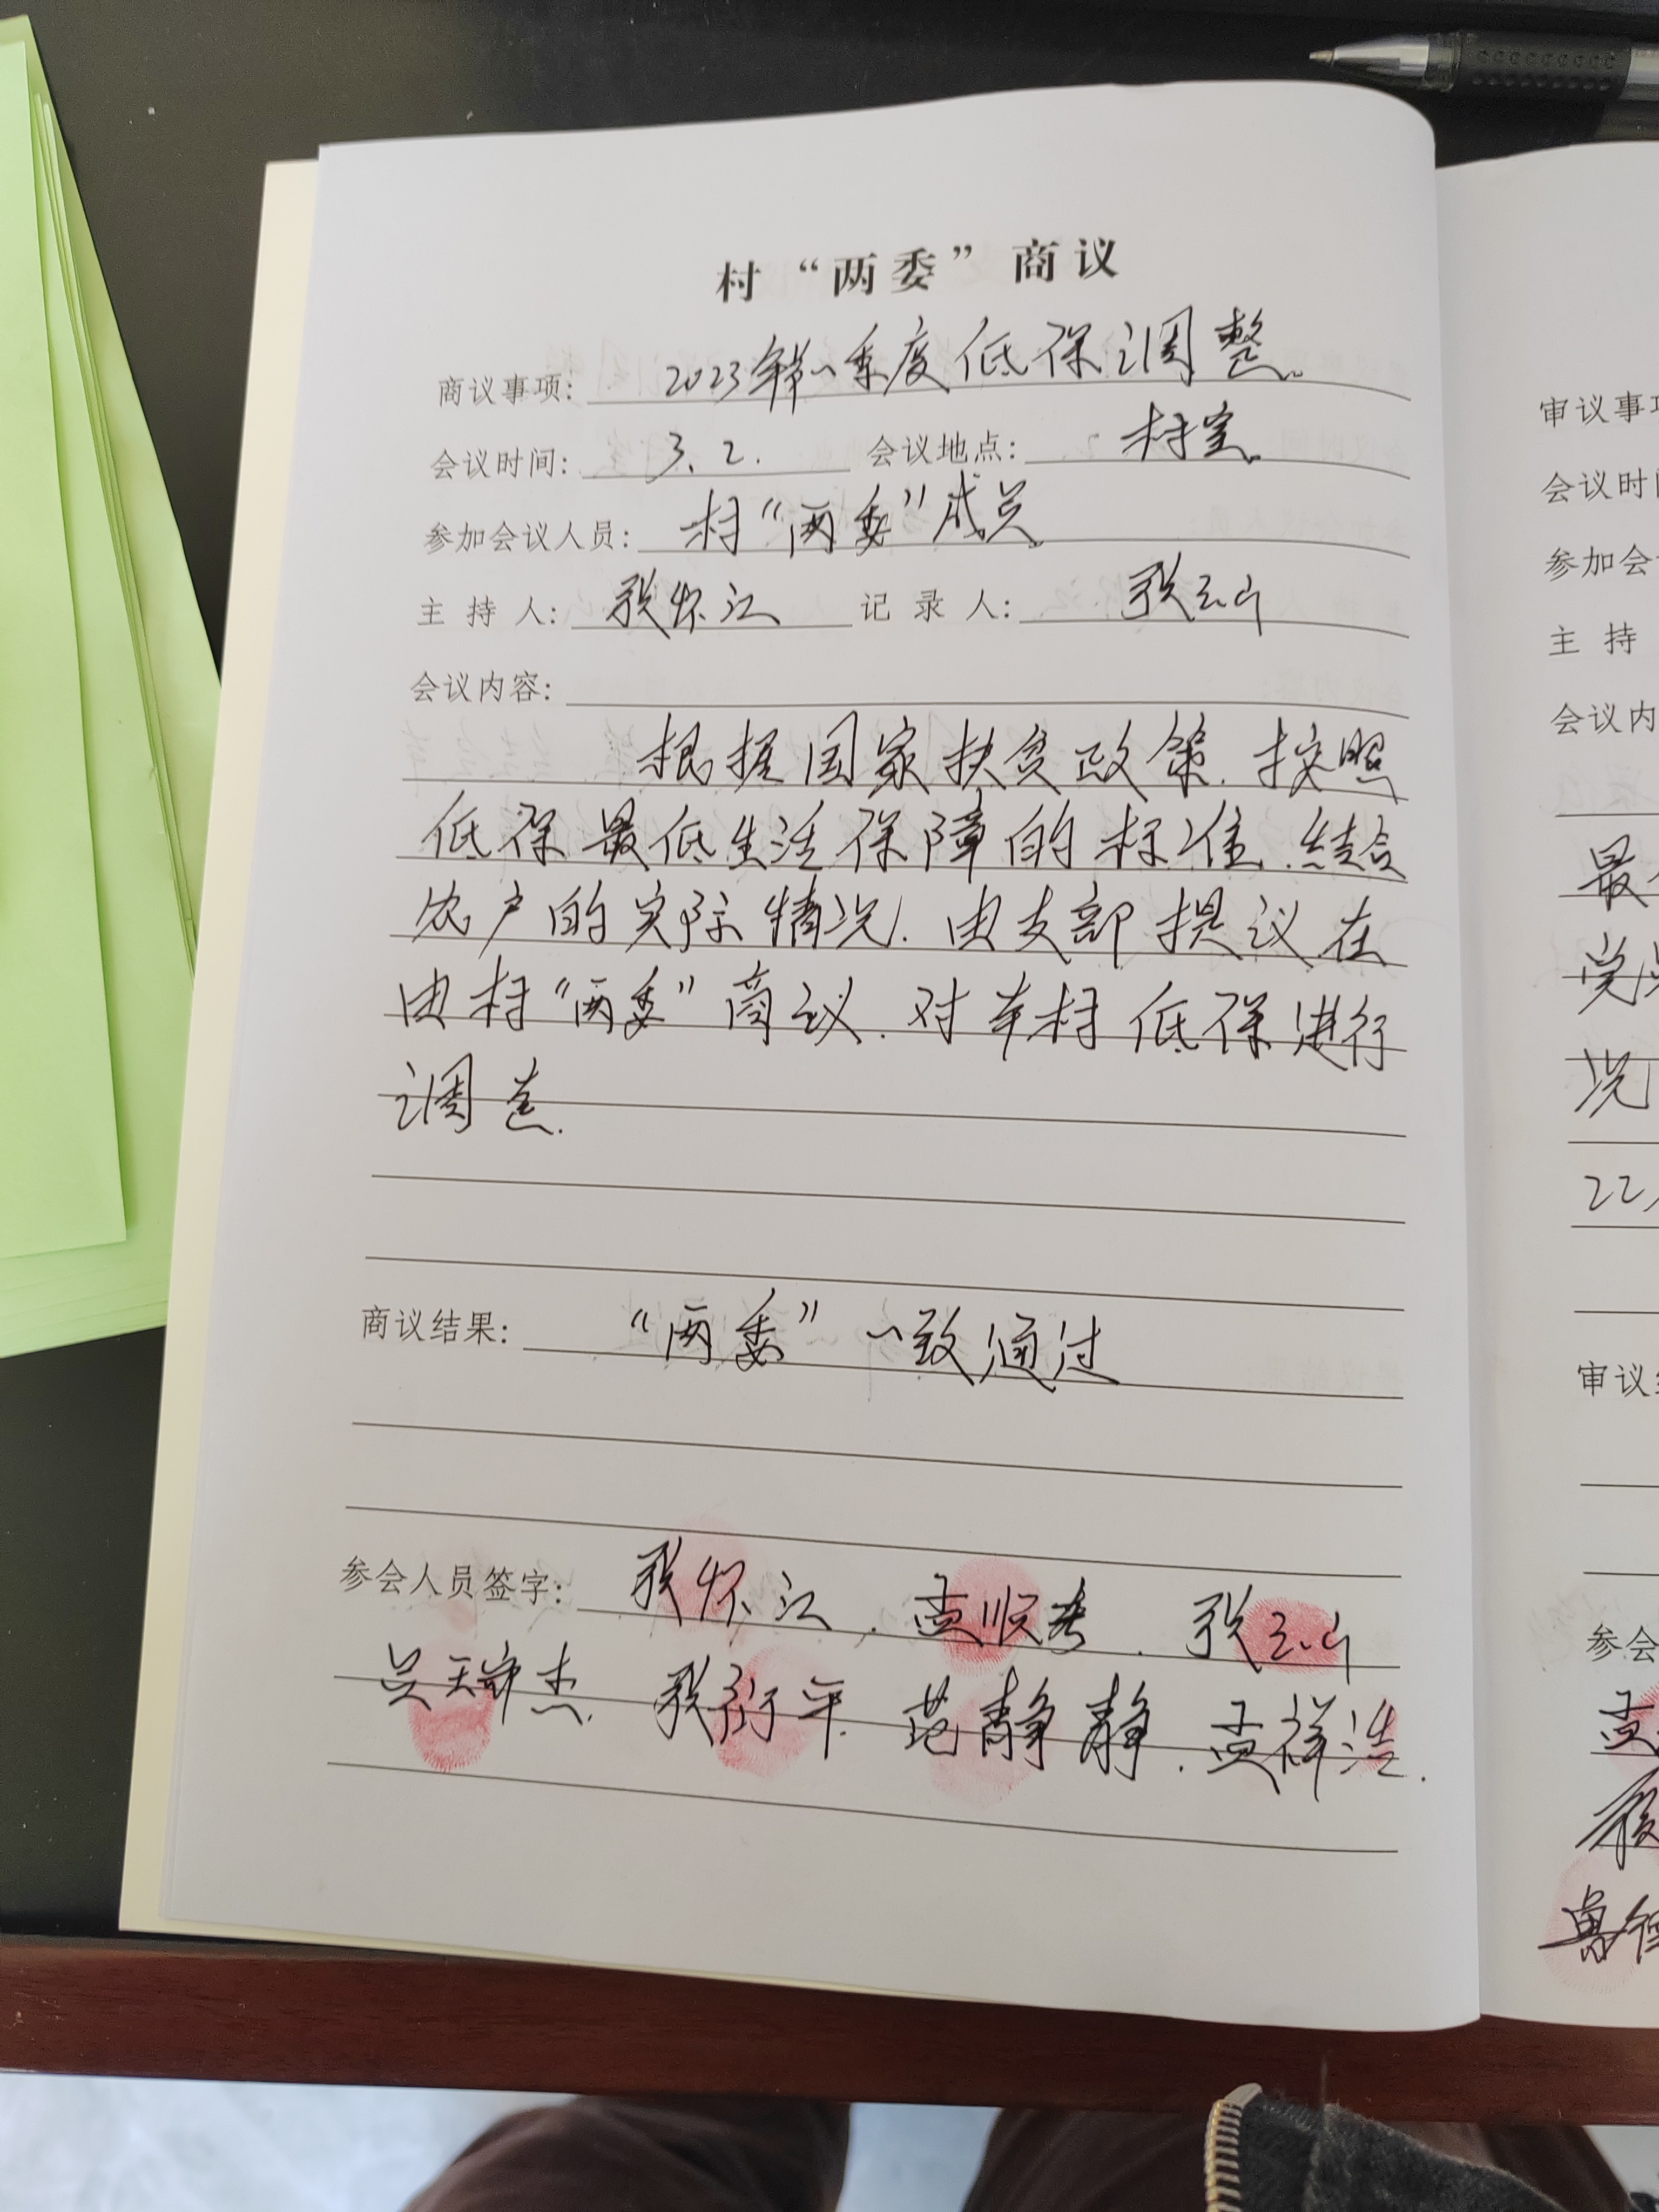 村“两委”商议
商议事项: 2023年第一季度低保调整。
会议时间: 3.2. 会议地点: 村室。
参加会议人员: 村“两委”成员
主持人: 张怀江 记录人:
会议内容:
根据国家扶贫政策.按照
低保最低生活保障的标准.结合
农户的实际情况.由支部提议在
由村“两委”商议.对本村低保进行
调查.
商议结果: “两委”一致通过
参会人员签字: 张怀江.孟顺.
吴瑞杰.张衍平.范静静.孟祥浩.
审议事项
会议时间
参加会
主持
会议内
最
党
况
22
审议
参会
孟